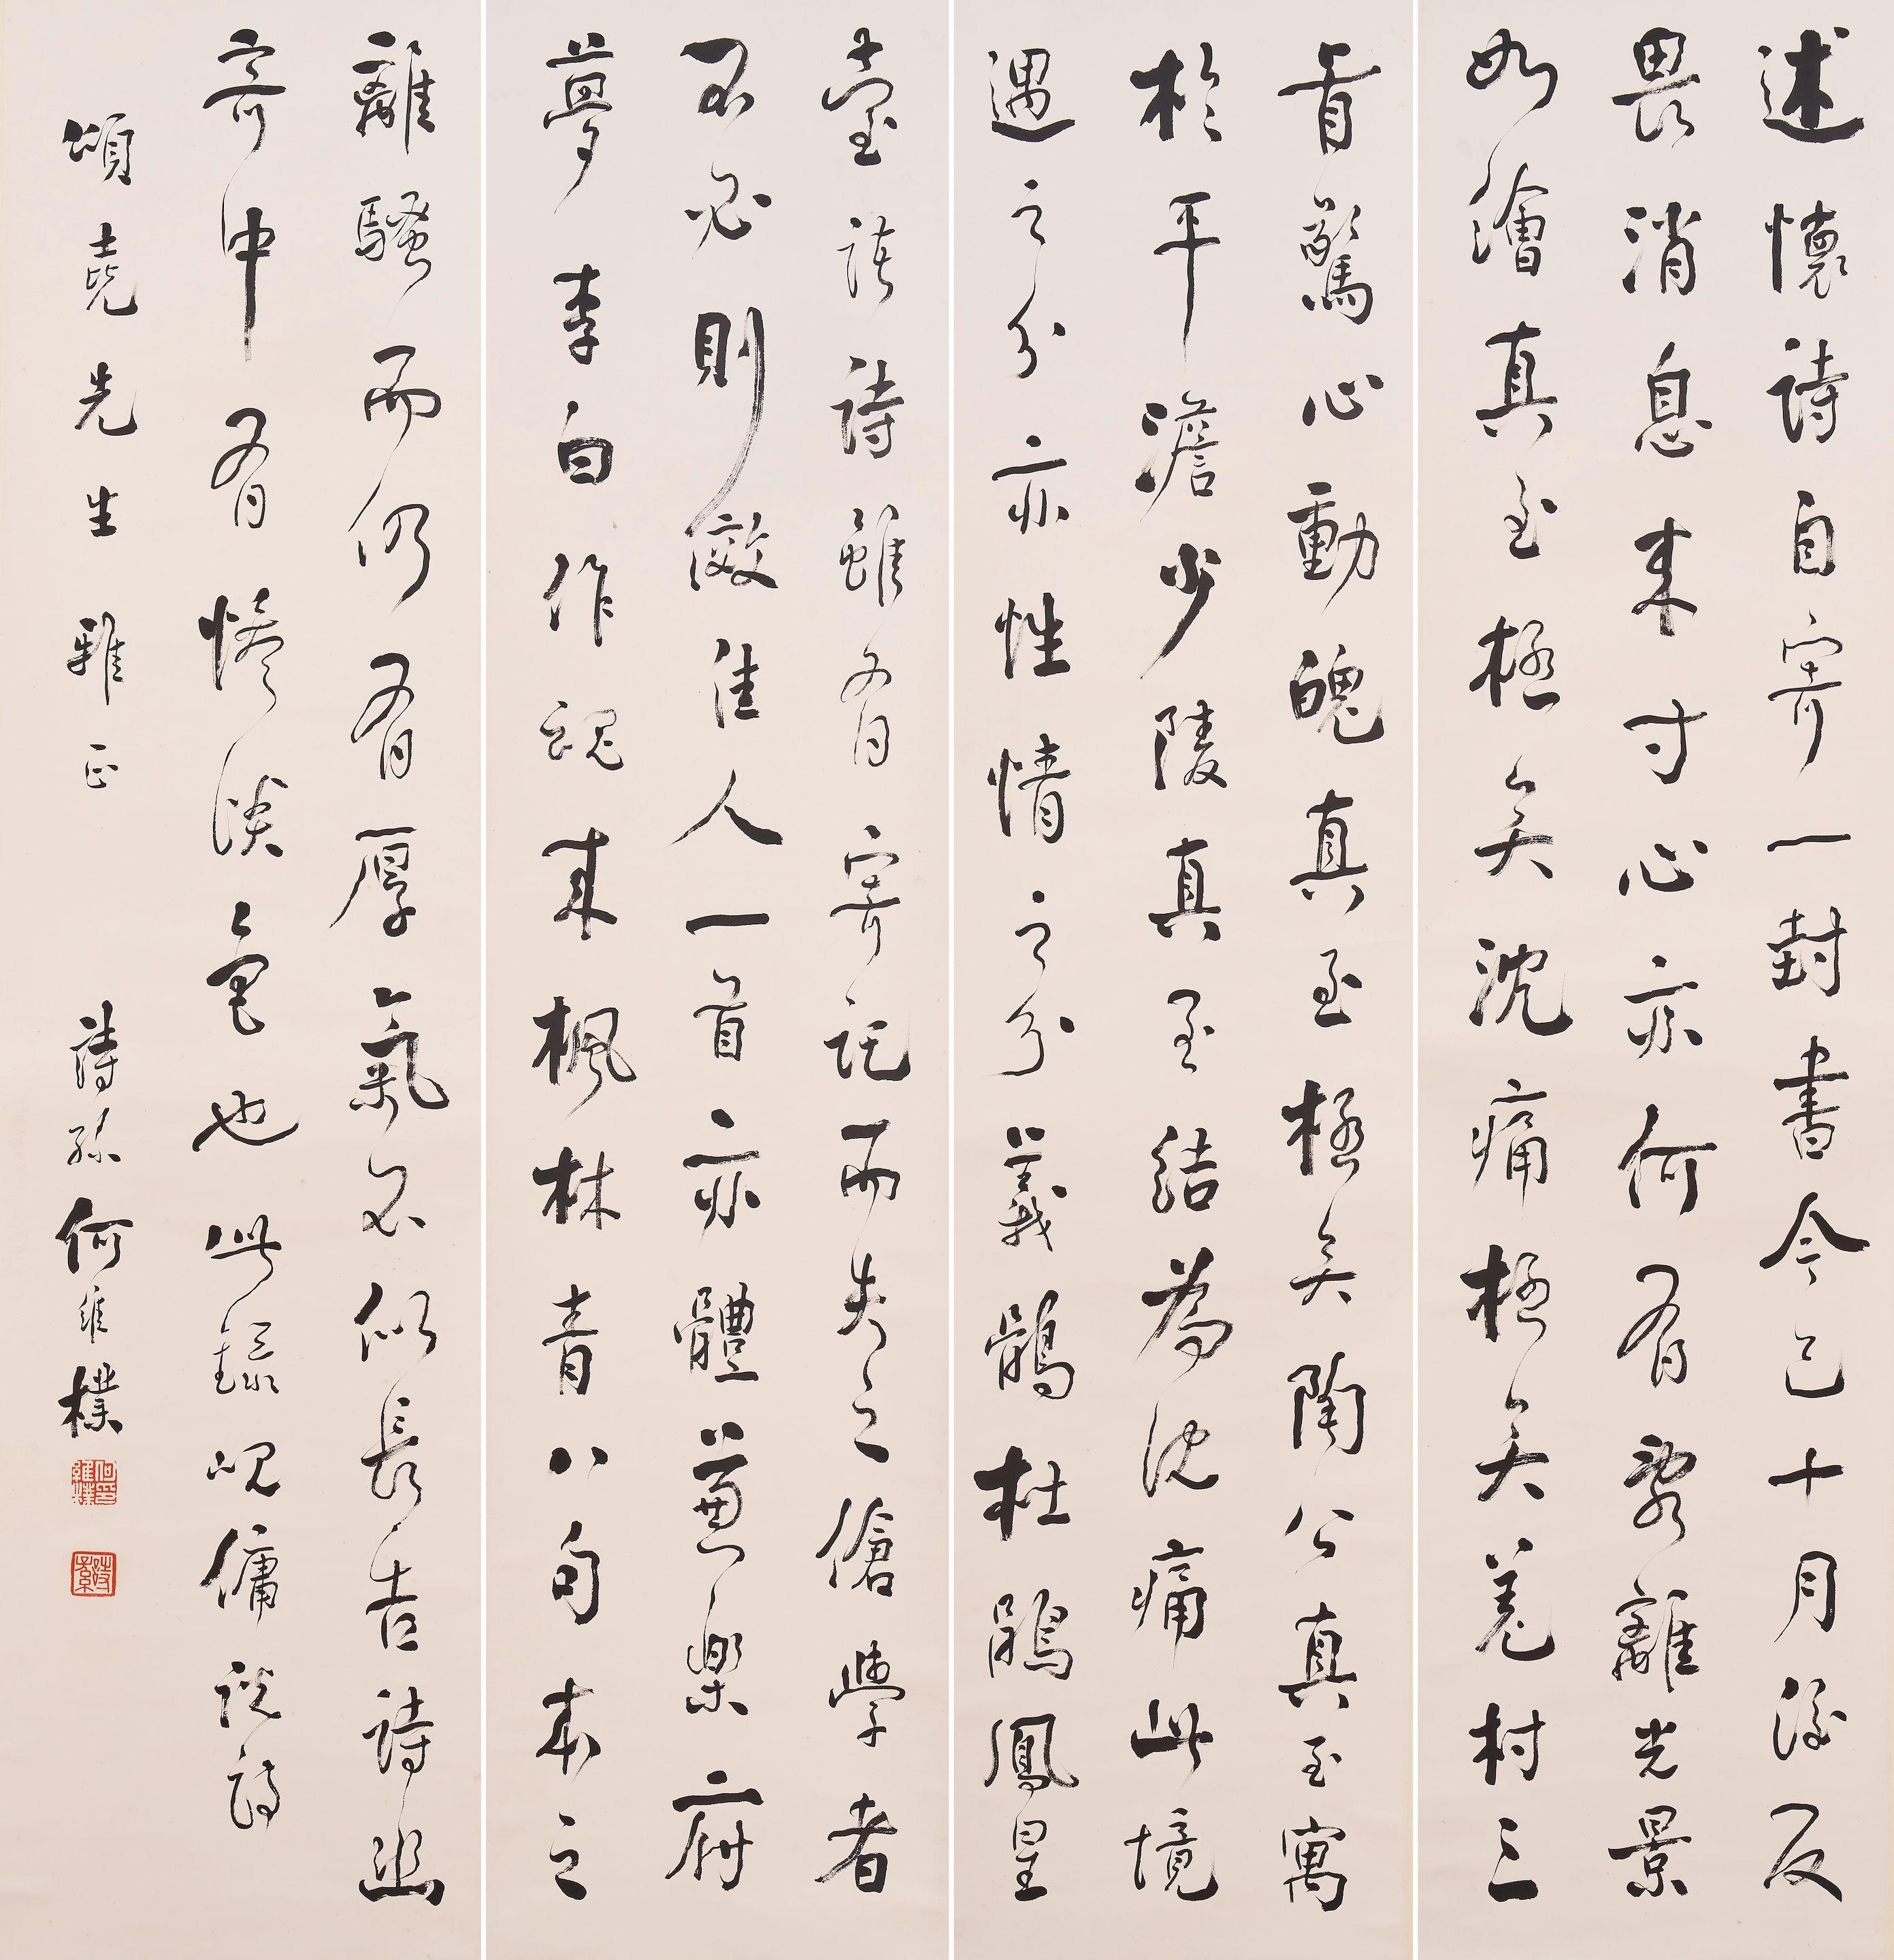 述懷詩自寄一封書今已十月後反
畏消息來寸心亦何有寫離光景
如繪真至極矣沈痛極矣羌村三
首驚心動魄真至極矣陶公真至寓
於平澹少陵真至結為沈痛此境
遇之分亦性情之分義鶻杜鵑鳳皇
臺諸詩雖有寄託而失之傖學者
不必則傚佳人一首亦體兼樂府
夢李白作魂來楓林青八句本之
離騷而仍有厚氣不似長吉詩幽
奇中有慘淡色也此錄峴傭說詩
頌堯先生雅正
詩孫何維樸
何維樸印
詩孫